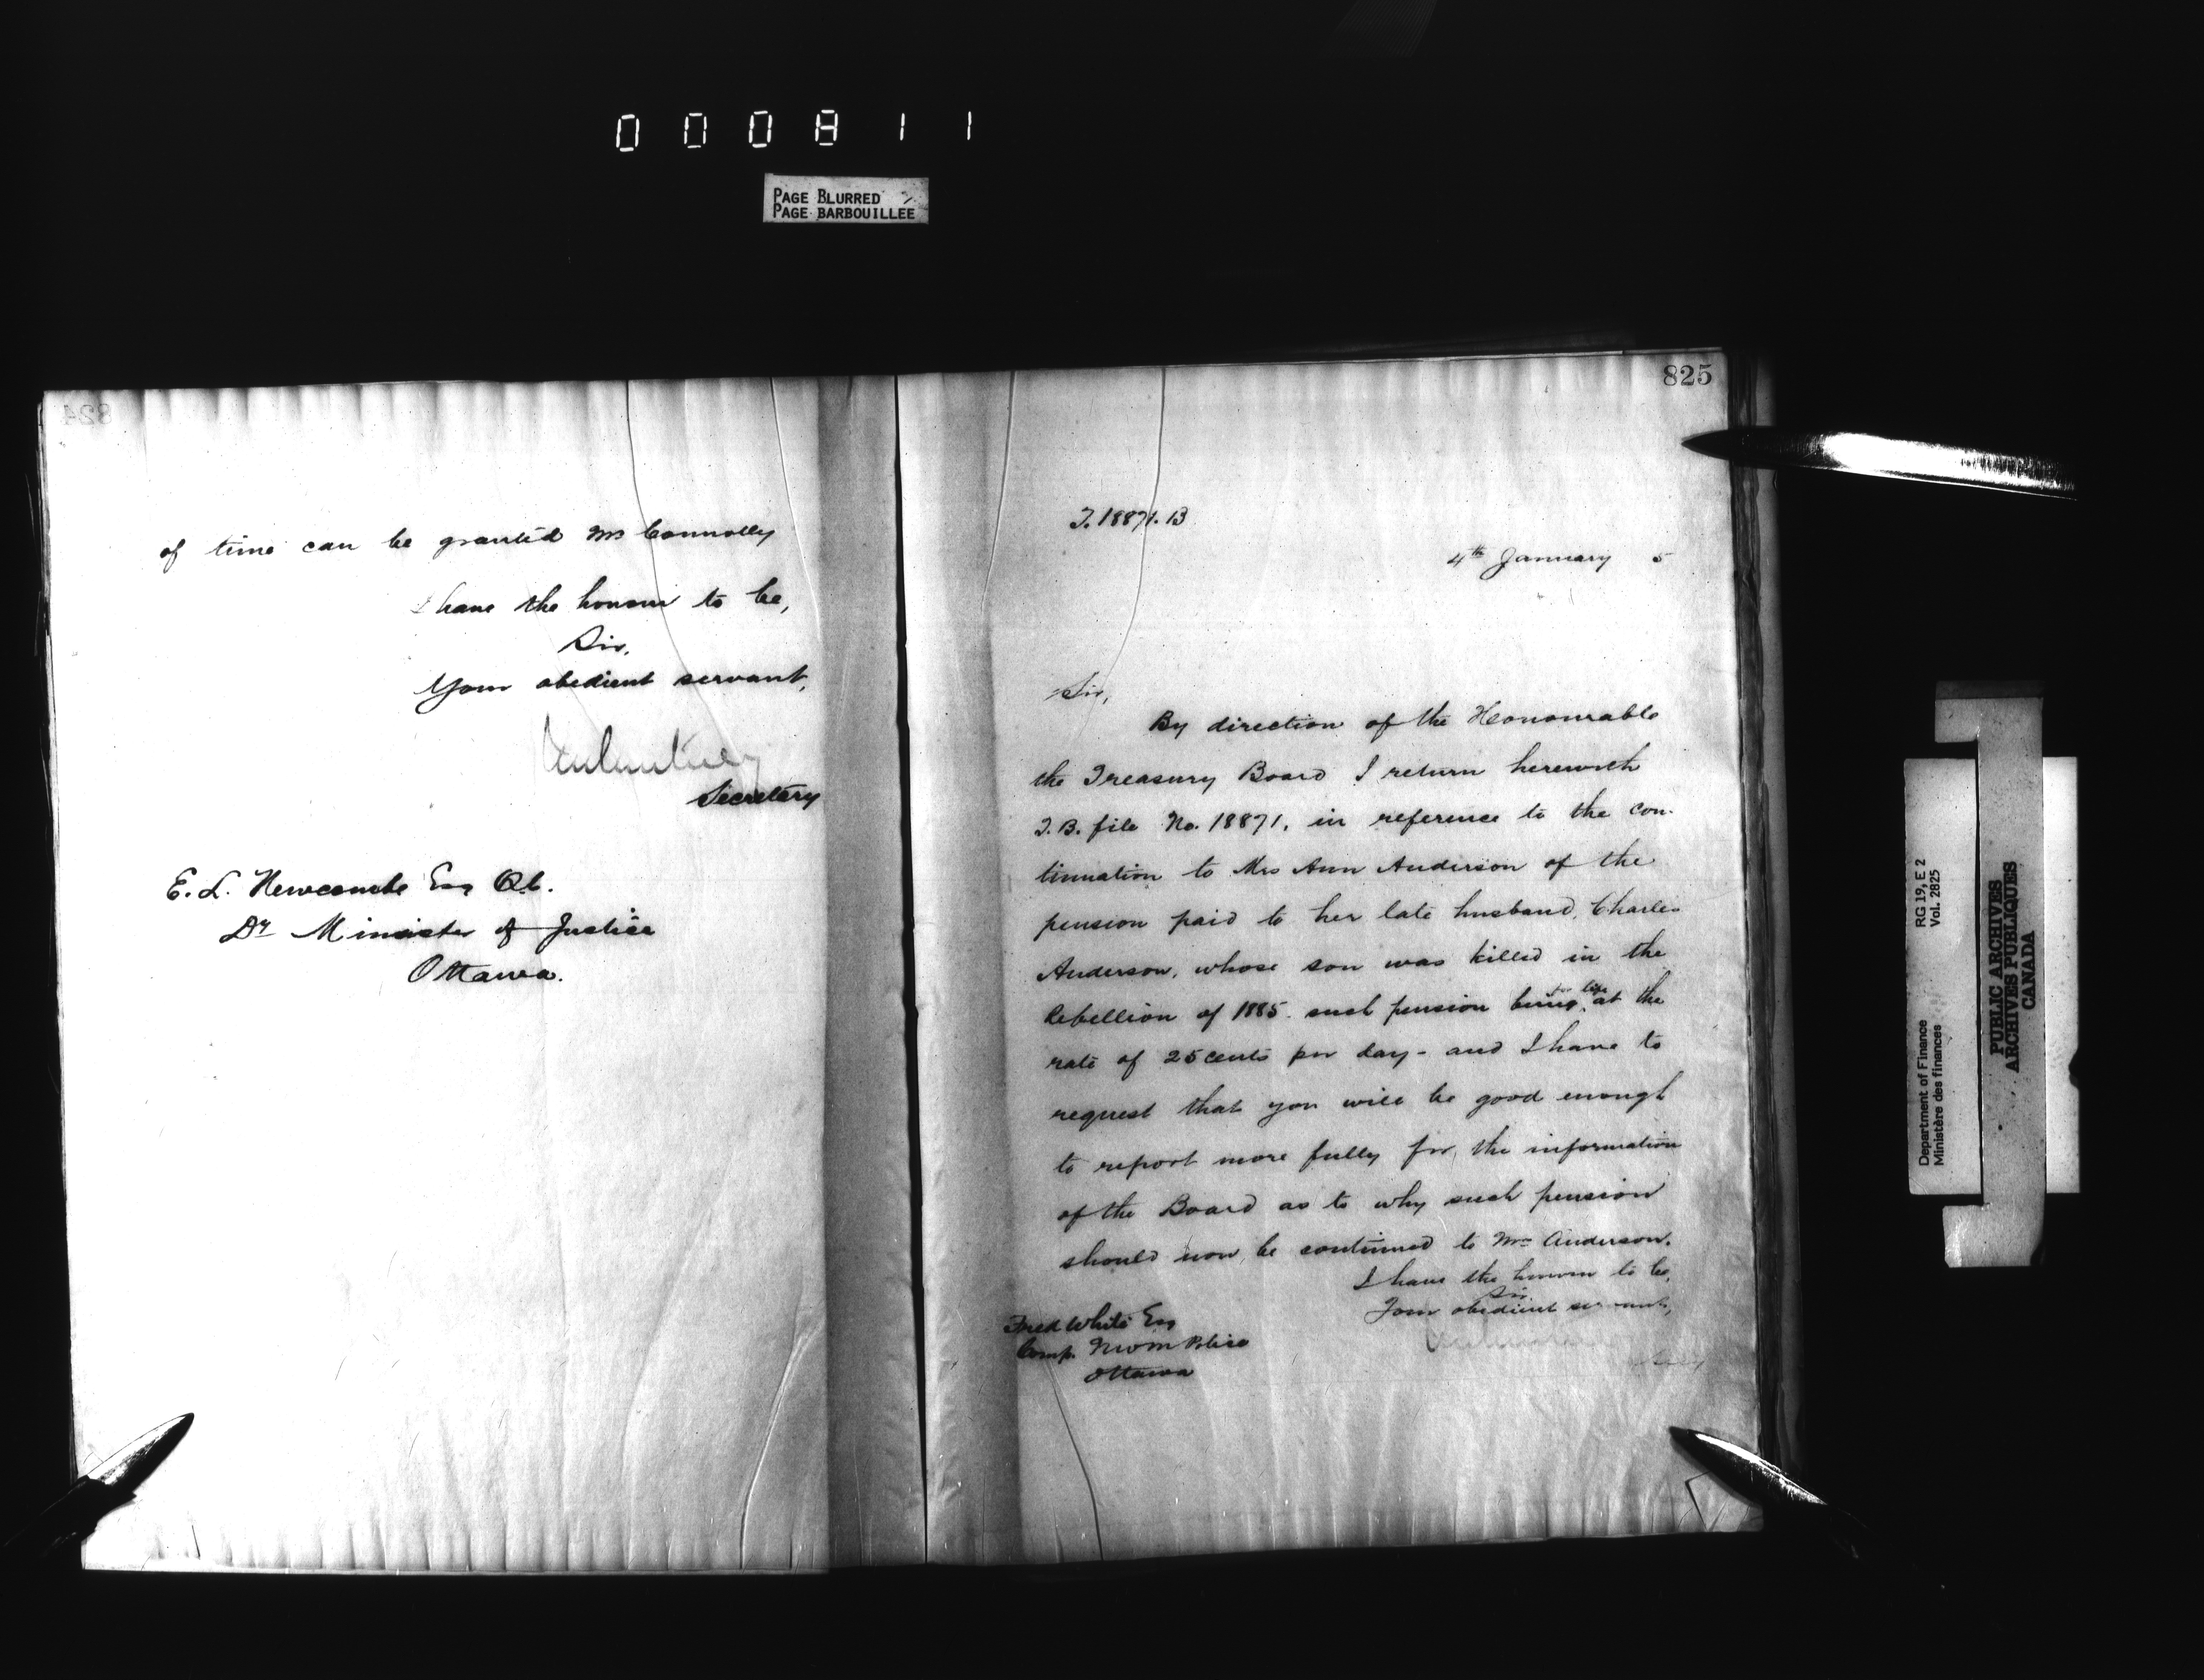 000811
PAGE BLURRED
PAGE BARBOUILLEE
824
of time can be granted Mr Connolly
I have the honour to be,
Sir,
Your obedient servant,
Secretary
E. L. Newcombe Esq Q.C.
Dy Minister of Justice
Ottawa.
825
T. 18871. B
4th January 5
Sir,
By direction of the Honourable
the Treasury Board I return herewith
T.B. file No. 18871, in reference to the con-
tinuation to Mrs Ann Anderson of the
pension paid to her late husband, Charles
Anderson, whose son was killed in the
Rebellion of 1885. such pension being for life at the
rate of 25 cents per day - and I have to
request that you will be good enough
to report more fully for the information
of the Board as to why such pension
should now be continued to Mrs Anderson.
I have the honour to be,
Sir,
Your obedient servant,
Secy
Fred White Esq
Comp. N W M Police
Ottawa
Department of Finance RG 19, E 2
Ministère des finances Vol. 2825
PUBLIC ARCHIVES
ARCHIVES PUBLIQUES
CANADA